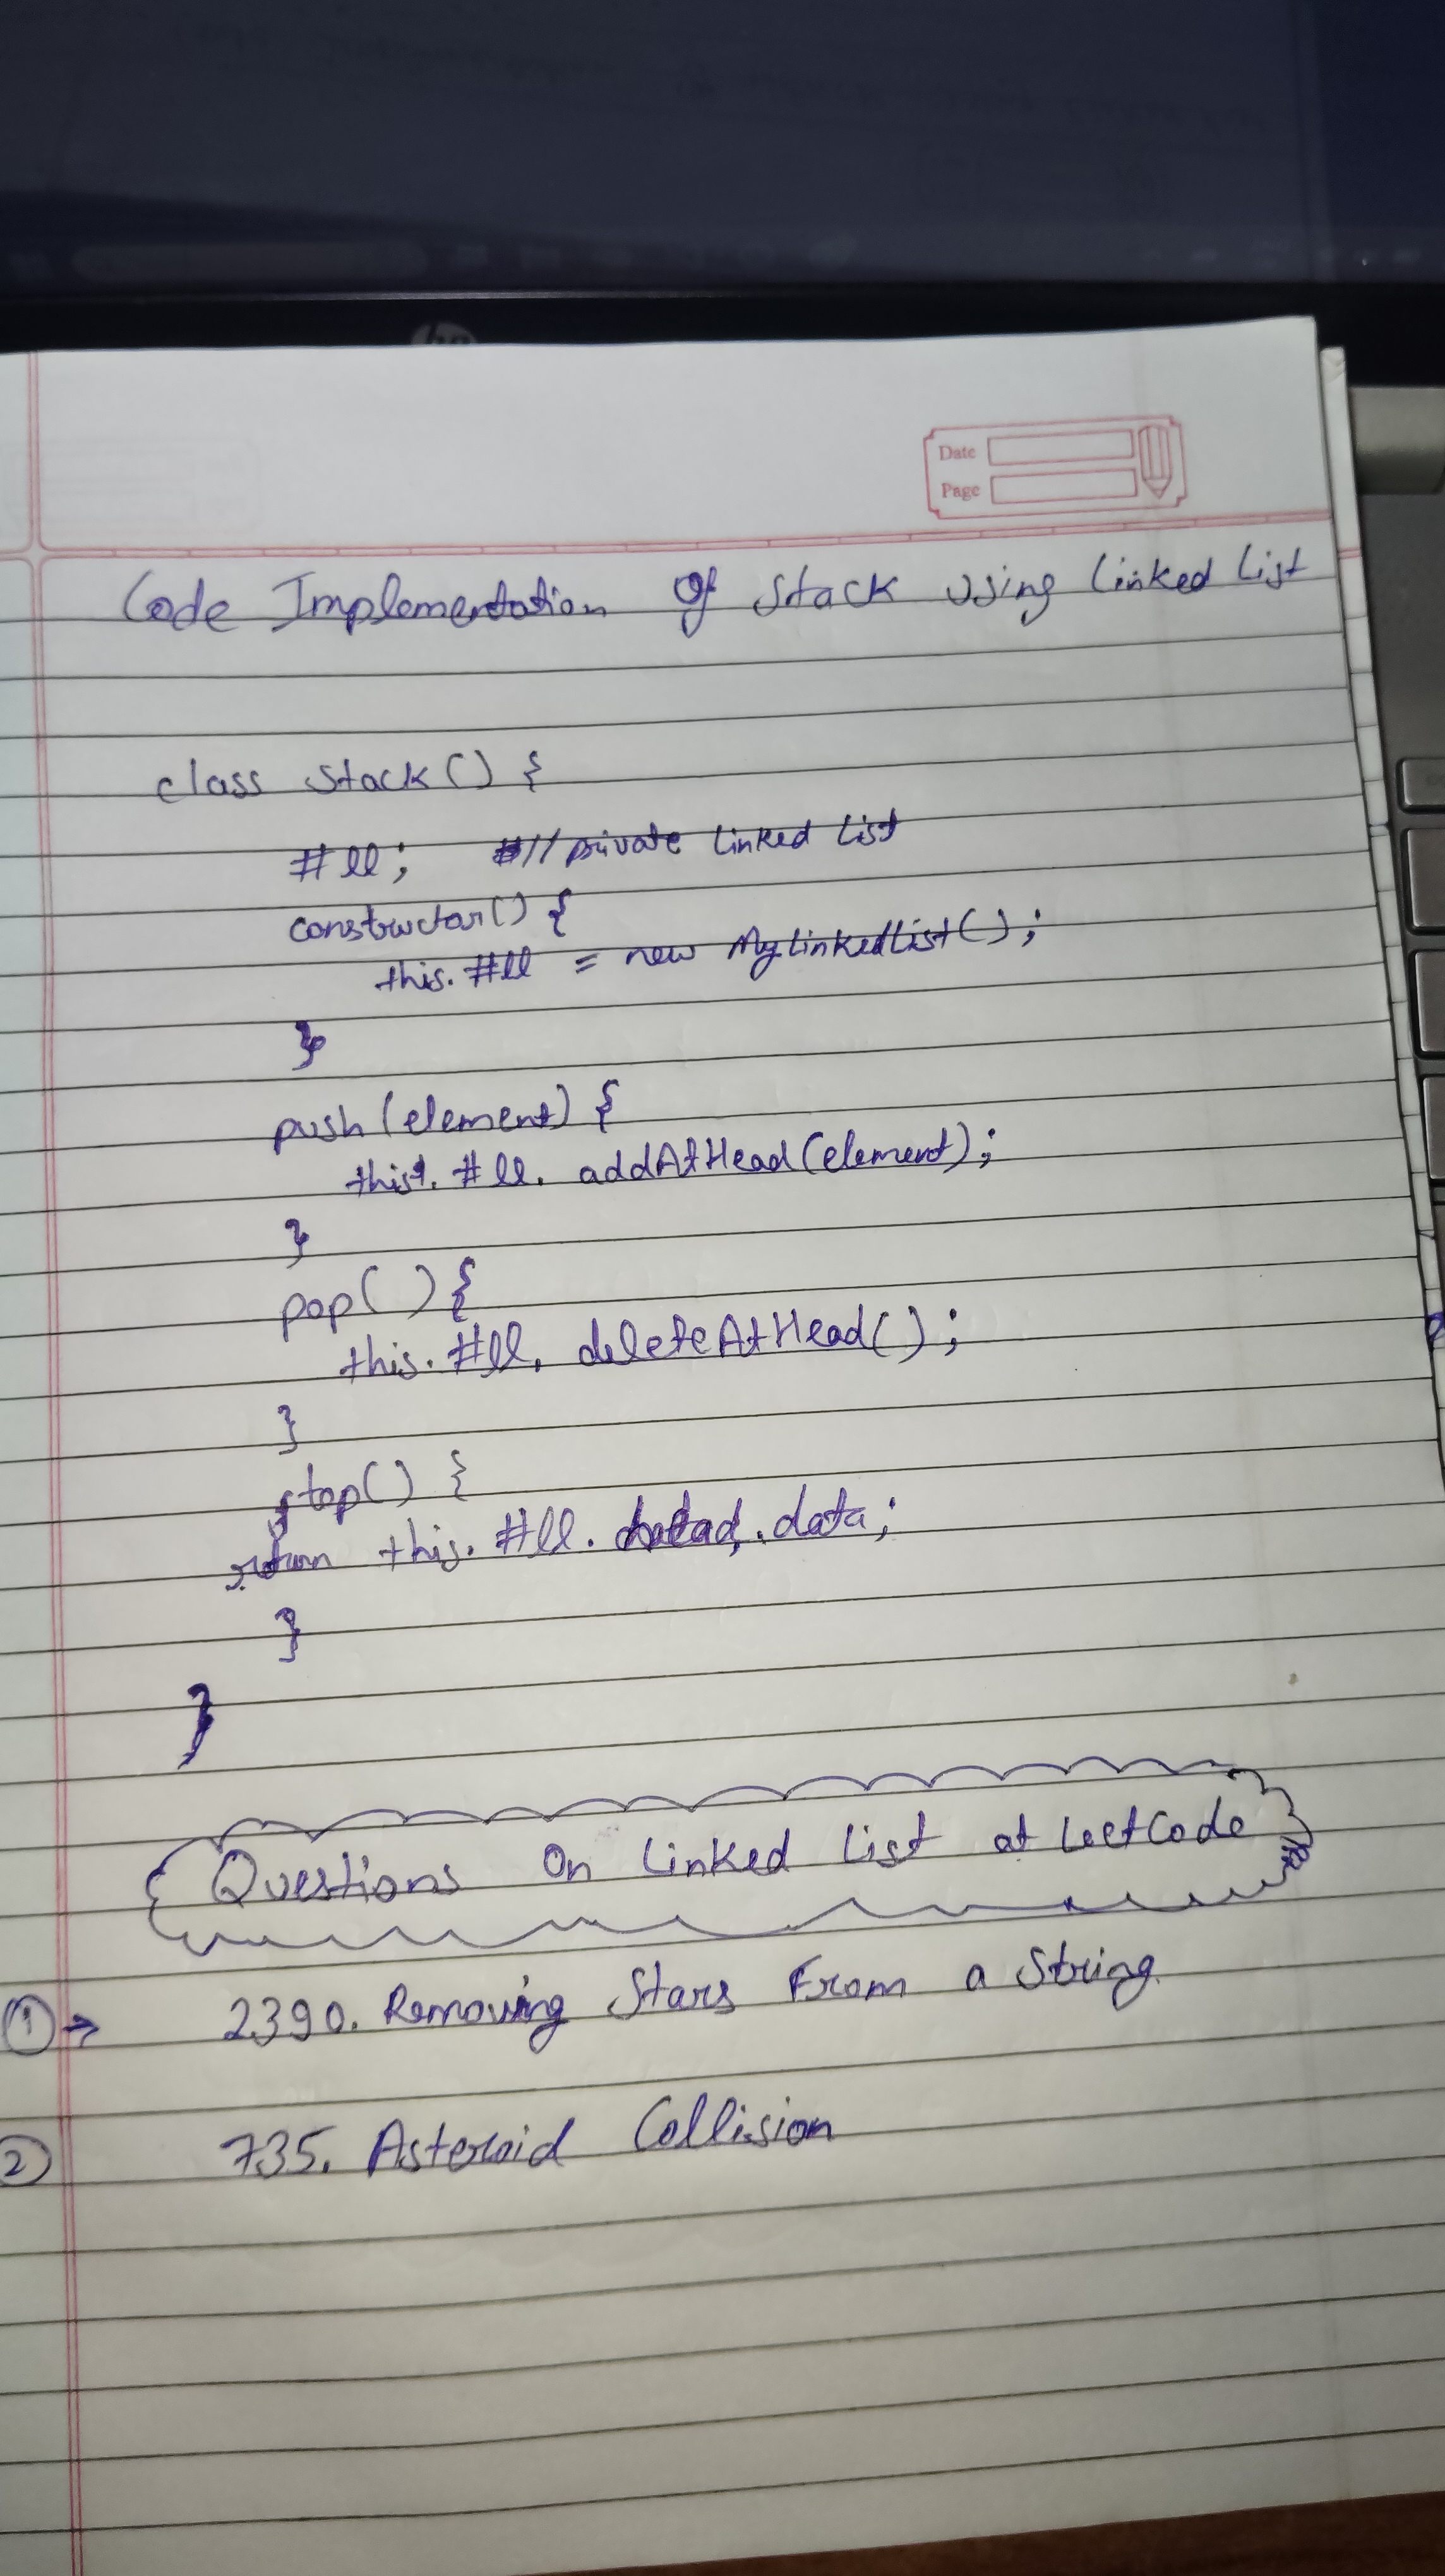 Date
Page
Code Implementation Of Stack Using Linked List
class Stack() {
#ll; // private linked list
constructor() {
this.#ll = new MyLinkedList();
}
push(element) {
this.#ll.addAtHead(element);
}
pop() {
this.#ll.deleteAtHead();
}
top() {
return this.#ll.head.data;
}
}
Questions On Linked List at LeetCode
1 → 2390. Removing Stars From a String
2 735. Asteroid Collision